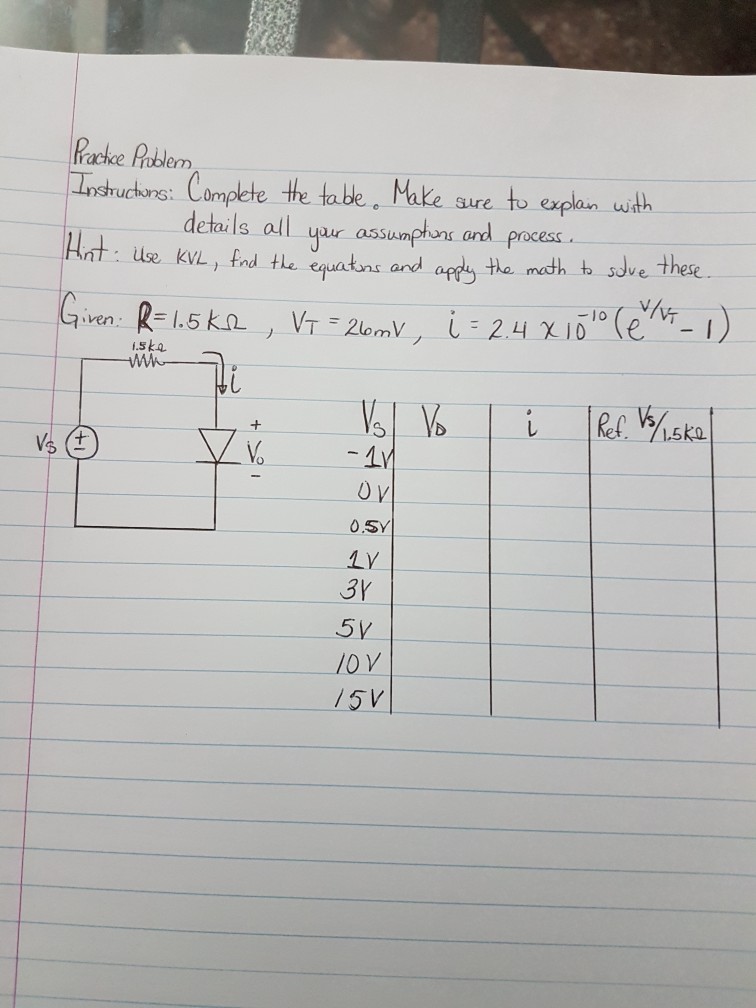 Practice Problem
Instructions: Complete the table. Make sure to explan with
details all your assumptions and process.
Hint: Use KVL, find the equations and apply the math to solve these.
Given: R=1.5KΩ, VT=26mV, i=2.4×10^-10(e^V/VT-1)
1.5kΩ
i
Vs
+
VD
-
Vs VD i Ref. Vs/1.5KΩ
-1V
0V
0.5V
1V
3V
5V
10V
15V